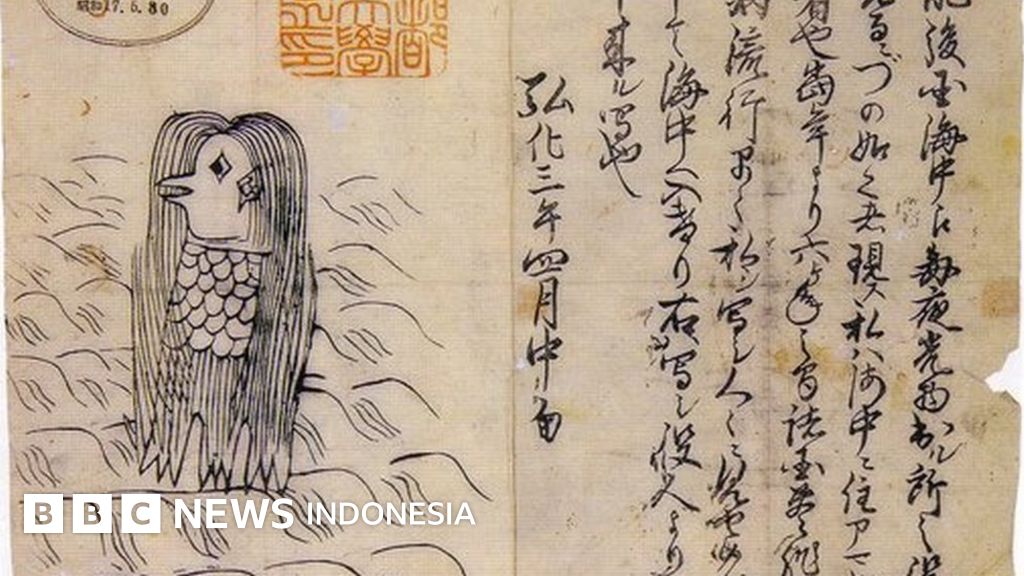 後国海中え毎夜光物出ル所之役
見るニづの如之者現ス私ハ海中ニ住ア
者也当年より六ヶ年之間諸国豊作
病流行早々私シ写シ人々ニ見せ候
申て海中へ入けり右写シ役人より
申来ル写也
弘化三年四月中旬
昭和17.5.30
BBC NEWS INDONESIA